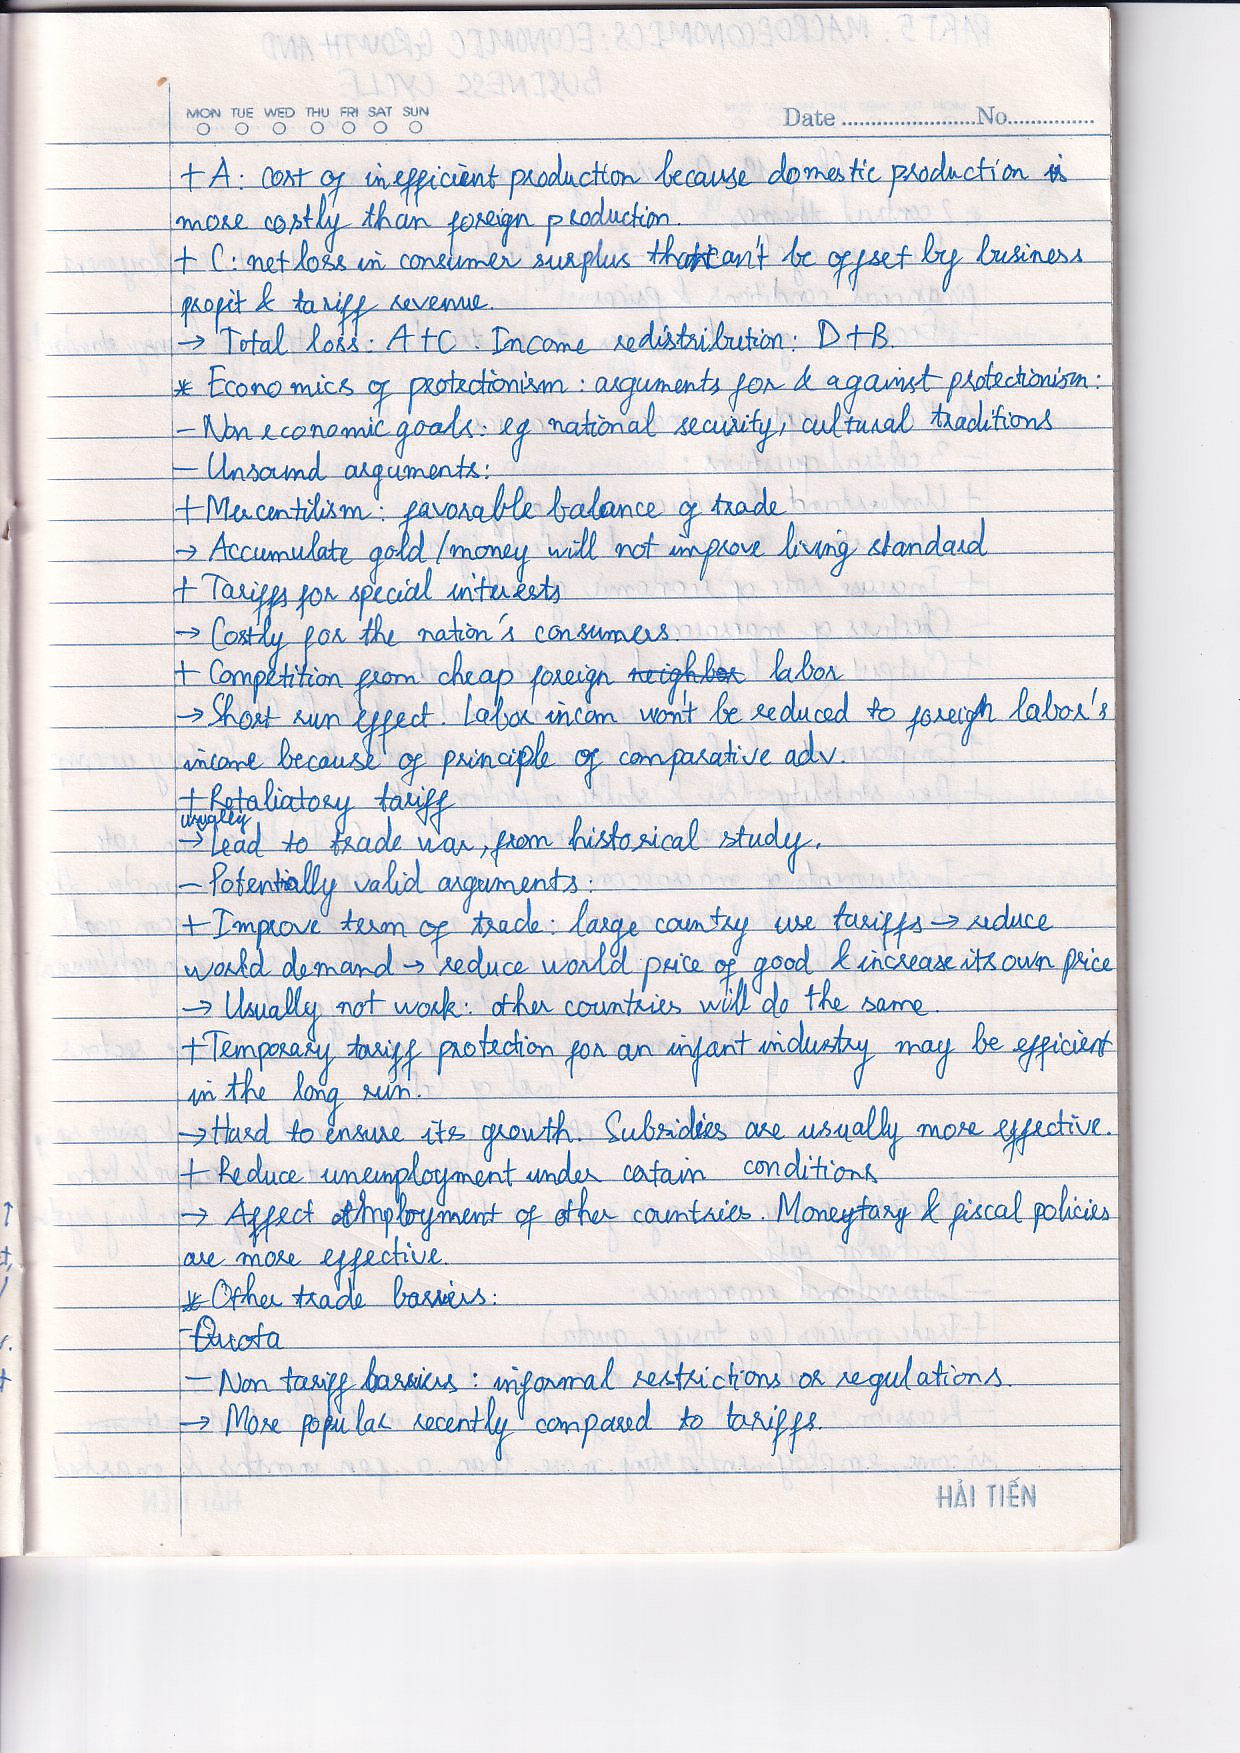 MON TUE WED THU FRI SAT SUN
Date ........................No...............
+ A: cost of inefficient production because domestic production is
more costly than foreign production.
+ C: net loss in consumer surplus that can't be offset by business
profit & tariff revenue.
→ Total loss: A+C. Income redistribution: D+B.
* Economics of protectionism: arguments for & against protectionism:
- Non economic goals: eg national security, cultural traditions
- Unsound arguments:
+ Mercentilism: favorable balance of trade
→ Accumulate gold/money will not improve living standard
+ Tariffs for special interests
→ Costly for the nation's consumers
+ Competition from cheap foreign neighbor labor
→ Short run effect. Labor incom won't be reduced to foreign labor's
income because of principle of comparative adv.
+ Retaliatory tariff
usually
→ Lead to trade war, from historical study.
- Potentially valid arguments:
+ Improve term of trade: large country use tariffs → reduce
world demand → reduce world price of good & increase its own price
→ Usually not work: other countries will do the same.
+ Temporary tariff protection for an infant industry may be efficient
in the long run.
→ Hard to ensure its growth. Subsidies are usually more effective.
+ Reduce unemployment under catain conditions
→ Affect employment of other countries. Moneytary & fiscal policies
are more effective.
* Other trade barriers:
- Quota
- Non tariff barriers: informal restrictions or regulations.
→ More popular recently compared to tariffs.
HẢI TIẾN